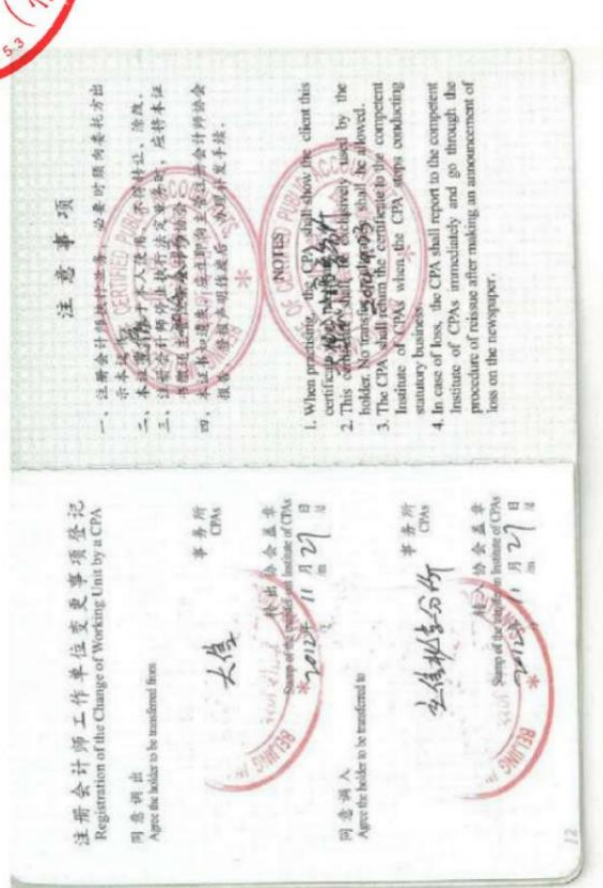 注册会计师工作单位变更事项登记
Registration of the Change of Working Unit by a CPA
同意调出
Agree the holder to be transferred from
大信
事务所
CPAs
转出协会盖章
Stamp of the transfer-out Institute of CPAs
2012年 11月 27日
/y /m /d
同意调入
Agree the holder to be transferred to
事务所
CPAs
转入协会盖章
Stamp of the transfer-in Institute of CPAs
2012年 11月 27日
/y /m /d
BEIJING
12
注意事项
一、注册会计师执行业务,必要时须向委托方出
示本证书。
二、本证书只限于本人使用,不得转让、涂改。
三、注册会计师停止执行法定业务时,应将本证
书缴还主管注册会计师协会。
四、本证书如遗失,应立即向主管注册会计师协会
报告,登报声明作废后,办理补发手续。
NOTES
1. When practising, the CPA shall show the client this
certificate
2. This certificate shall be exclusively used by the
holder. No transfer shall be allowed.
3. The CPA shall return the certificate to the competent
Institute of CPAs when the CPA stops conducting
statutory business.
4. In case of loss, the CPA shall report to the competent
Institute of CPAs immediately and go through the
procedure of reissue after making an announcement of
loss on the newspaper.
OF CERTIFIED PUBLIC ACCO
5.3